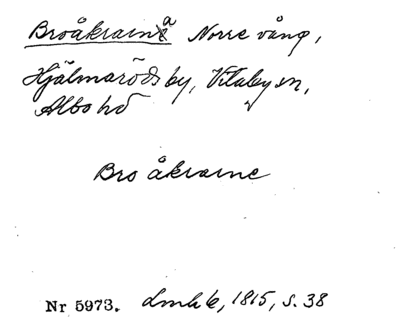 Broåkrarna Norre vång,
Hjälmaröds by, Vitaby sn,
Albo hd
Bro åkrarne
Nr 5973. Lmhk, 1815, s. 38